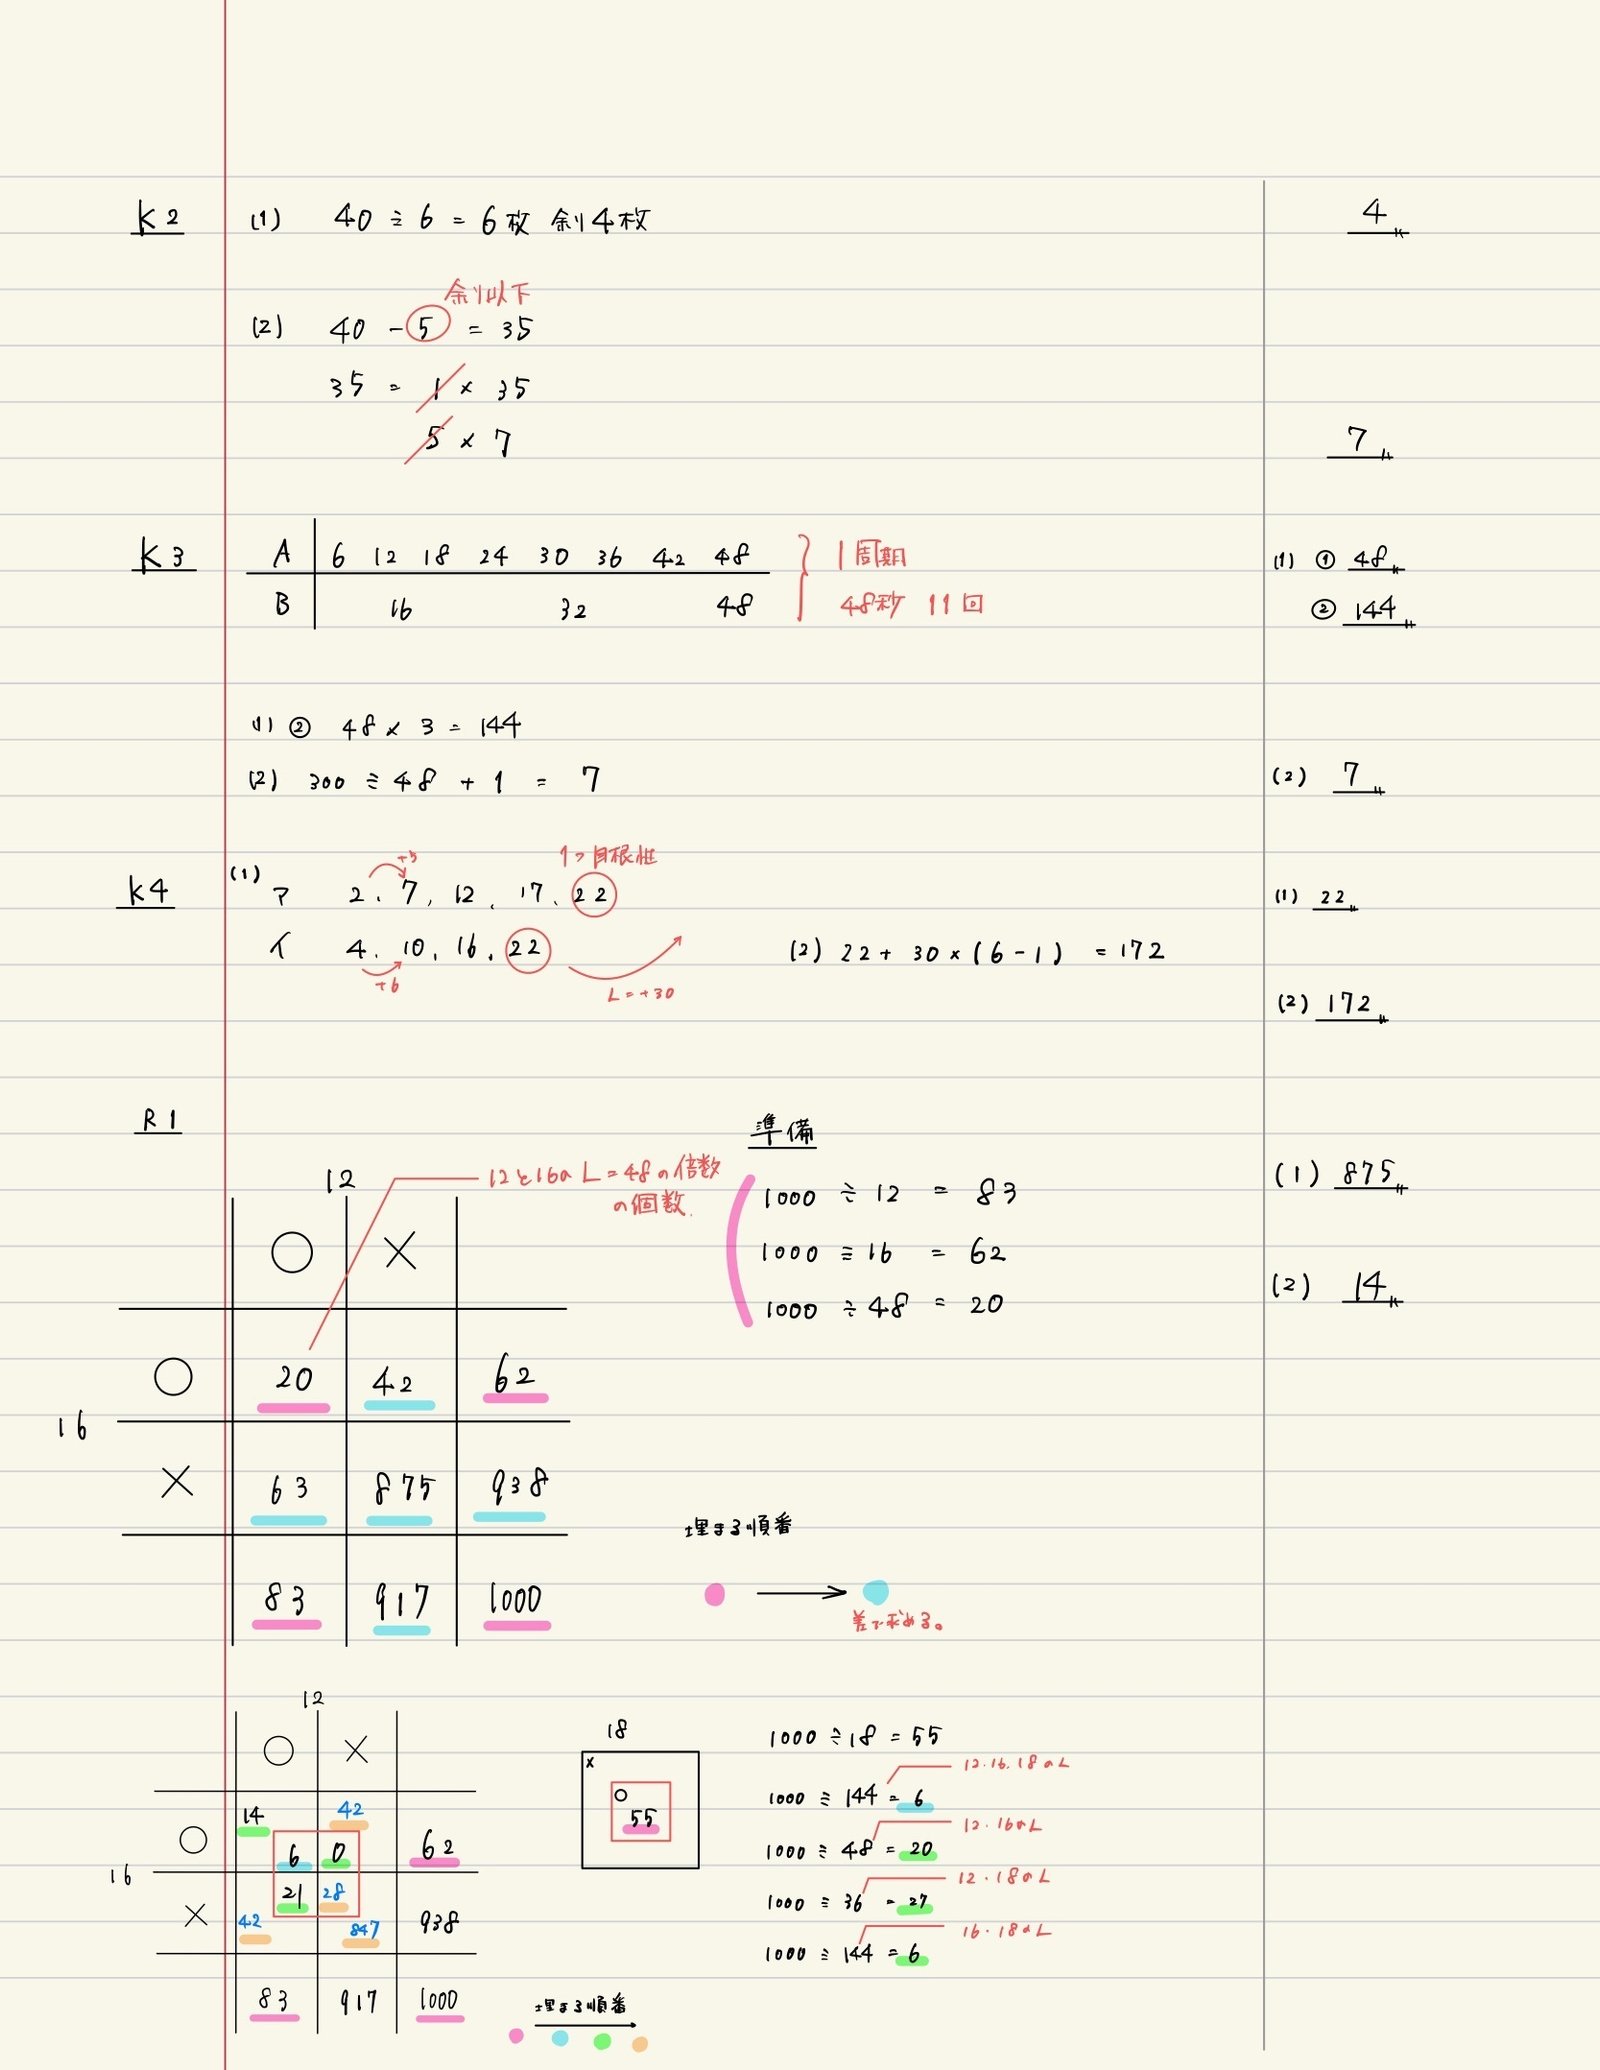 K2 (1) 40 ÷ 6 = 6枚 余り4枚 4
余り以下
(2) 40 - 5 = 35
35 = 1 × 35
5 × 7 7
K3 A 6 12 18 24 30 36 42 48 1周期 (1) ① 48
B 16 32 48 48秒 11回 ② 144
(1) ② 48 × 3 = 144
(2) 300 ÷ 48 + 1 = 7 (2) 7
+5 1つ目根性
K4 (1) ア 2、7、12、17、22 (1) 22
イ 4、10、16、22 (2) 22 + 30 × (6 - 1) = 172
+6 L = +30
(2) 172
R1 準備
12 12と16の L = 48の倍数 (1) 875
の個数. 1000 ÷ 12 = 83
○ × 1000 ÷ 16 = 62
1000 ÷ 48 = 20 (2) 14
○ 20 42 62
16
× 63 875 938
埋まる順番
83 917 1000
差で求める。
12
○ × 18 1000 ÷ 18 = 55
× 12・16・18のL
14 42 ○ 1000 ÷ 144 = 6
○ 6 0 62 55 12・16のL
16 1000 ÷ 48 = 20
21 28 12・18のL
× 42 847 938 1000 ÷ 36 = 27
16・18のL
1000 ÷ 144 = 6
83 917 1000 埋まる順番